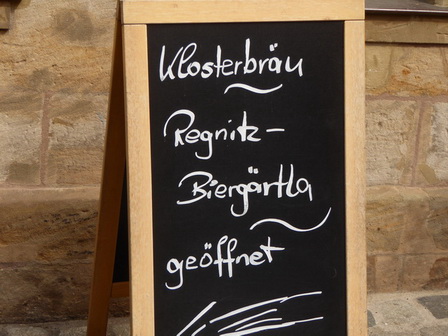 Klosterbräu
Regnitz-
Biergärtla
geöffnet